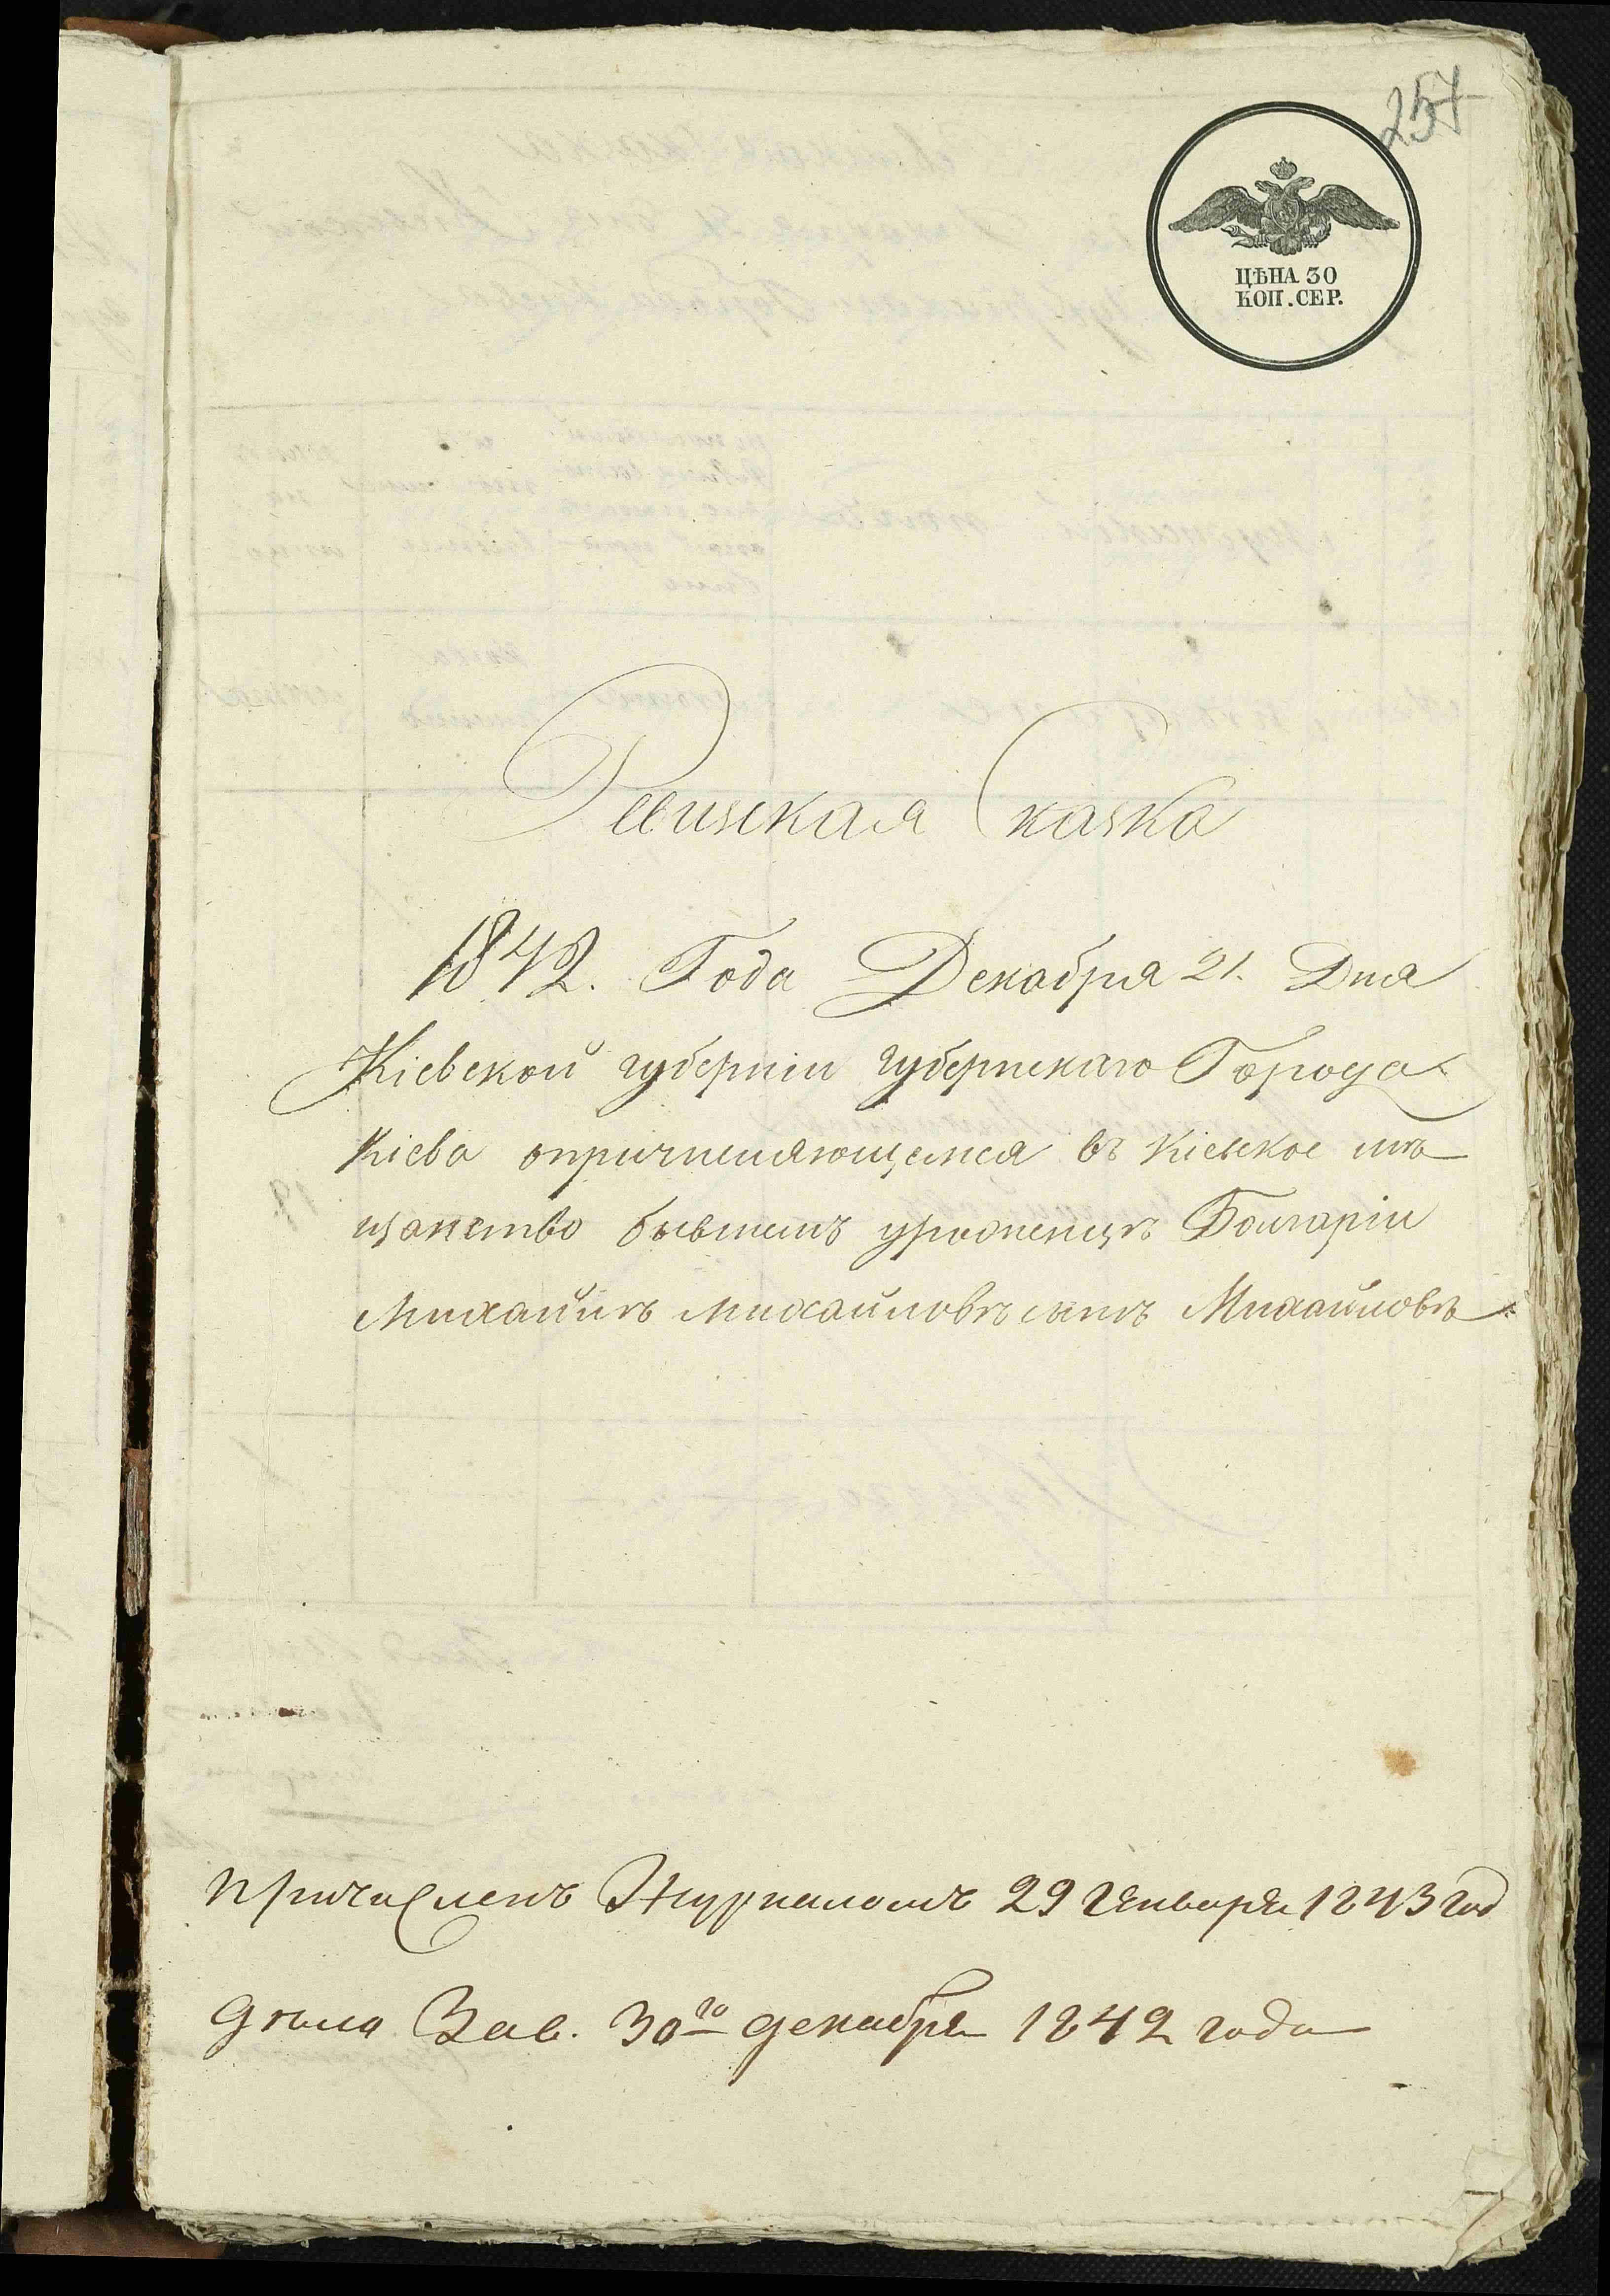 257
ЦѢНА 30
КОП. СЕР.
Ревизская Сказка
1842. Года Декабря 21. Дня
Кіевской губерніи губернскаго Города
Кіева опричисляющемся въ Кіевское мѣ
щанство бывшемъ уроженцѣ Болгаріи
Михаилѣ Михайловѣ сынѣ Михайловѣ
Причисленъ Журналомъ 29 Января 1843 год
дѣла Зав. 30го декабря 1842 года